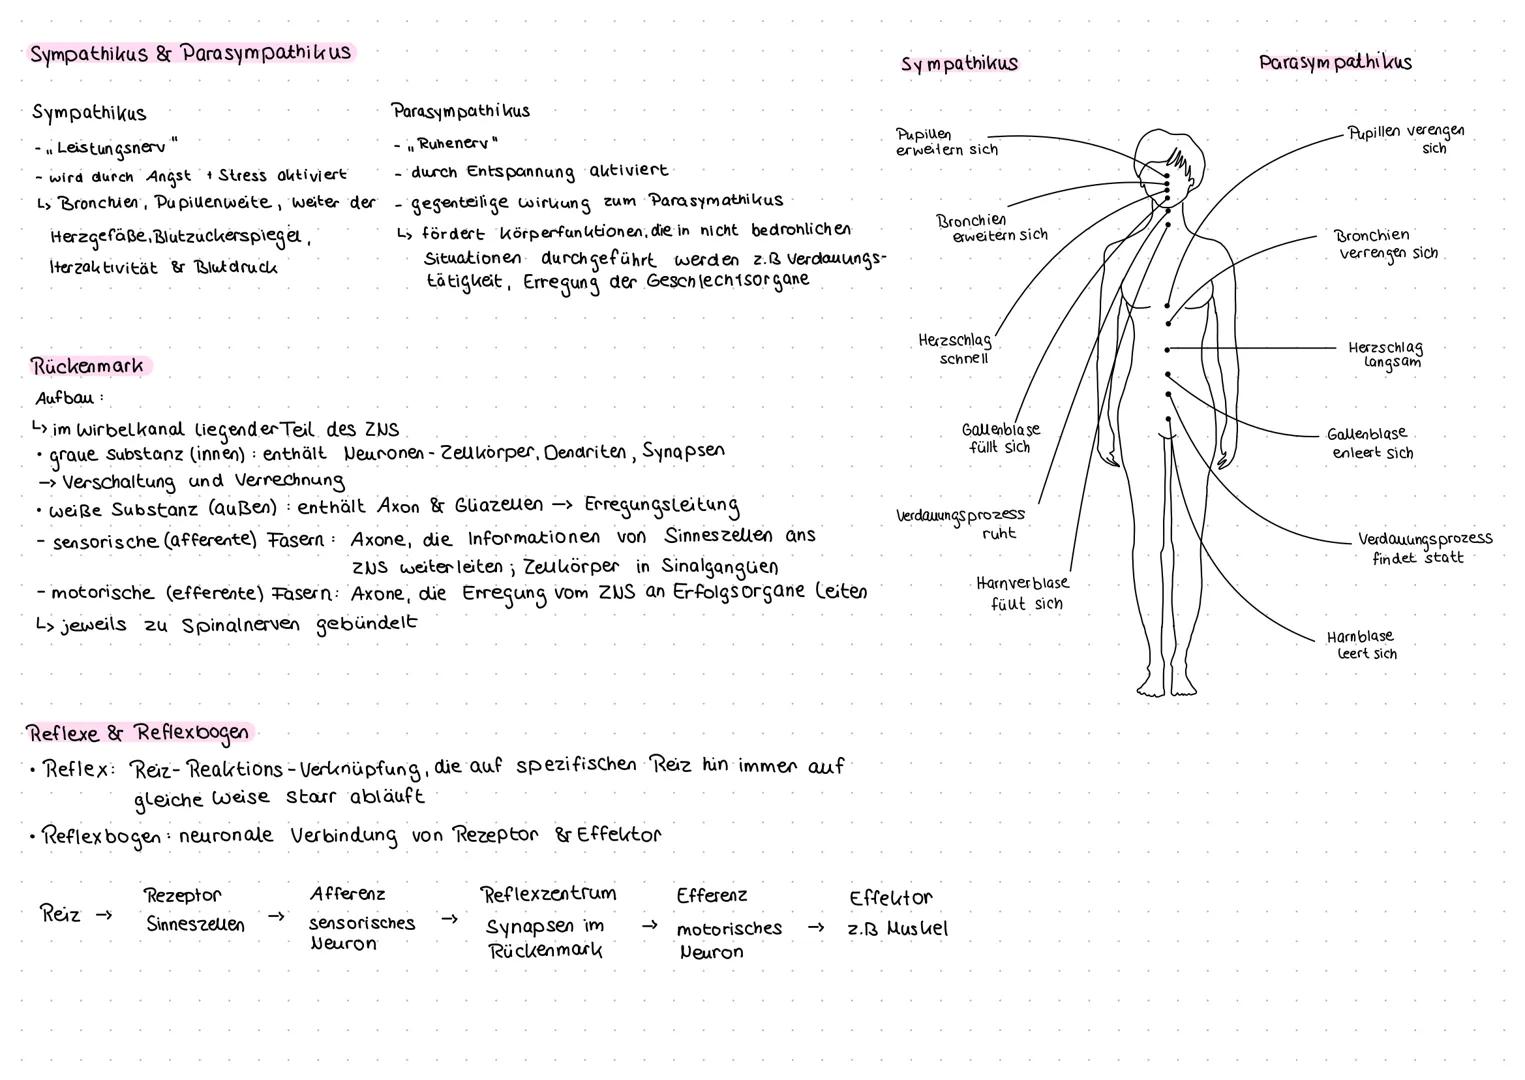 Sympathikus & Parasympathikus
Sympathikus
- „Leistungsnerv"
- wird durch Angst + Stress aktiviert
↳ Bronchien, Pupillenweite, weiter der
Herzgefäße, Blutzuckerspiegel,
Herzaktivität & Blutdruck
Parasympathikus
- „Ruhenerv"
- durch Entspannung aktiviert
- gegenteilige wirkung zum Parasymathikus
↳ fördert Körperfunktionen, die in nicht bedrohlichen
Situationen durchgeführt werden z.B Verdauungs-
tätigkeit, Erregung der Geschlechtsorgane
Rückenmark
Aufbau:
↳ im Wirbelkanal liegender Teil des ZNS
• graue substanz (innen): enthält Neuronen-Zellkörper, Dendriten, Synapsen
→ Verschaltung und Verrechnung
• weiße Substanz (außen): enthält Axon & Gliazellen → Erregungsleitung
- sensorische (afferente) Fasern: Axone, die Informationen von Sinneszellen ans
ZNS weiterleiten; Zellkörper in Sinalganglien
- motorische (efferente) Fasern: Axone, die Erregung vom ZNS an Erfolgsorgane leiten
↳ jeweils zu Spinalnerven gebündelt
Reflexe & Reflexbogen
• Reflex: Reiz-Reaktions-Verknüpfung, die auf spezifischen Reiz hin immer auf
gleiche Weise starr abläuft
• Reflexbogen: neuronale Verbindung von Rezeptor & Effektor
Reiz →
Rezeptor
Sinneszellen
→
Afferenz
sensorisches
Neuron
→
Reflexzentrum
Synapsen im
Rückenmark
→
Efferenz
motorisches
Neuron
→
Effektor
z.B Muskel
Sympathikus
Pupillen
erweitern sich
Bronchien
erweitern sich
Herzschlag
schnell
Gallenblase
füllt sich
Verdauungsprozess
ruht
Harnverblase
füllt sich
Parasympathikus
Pupillen verengen
sich
Bronchien
verrengen sich
Herzschlag
langsam
Gallenblase
enleert sich
Verdauungsprozess
findet statt
Harnblase
leert sich